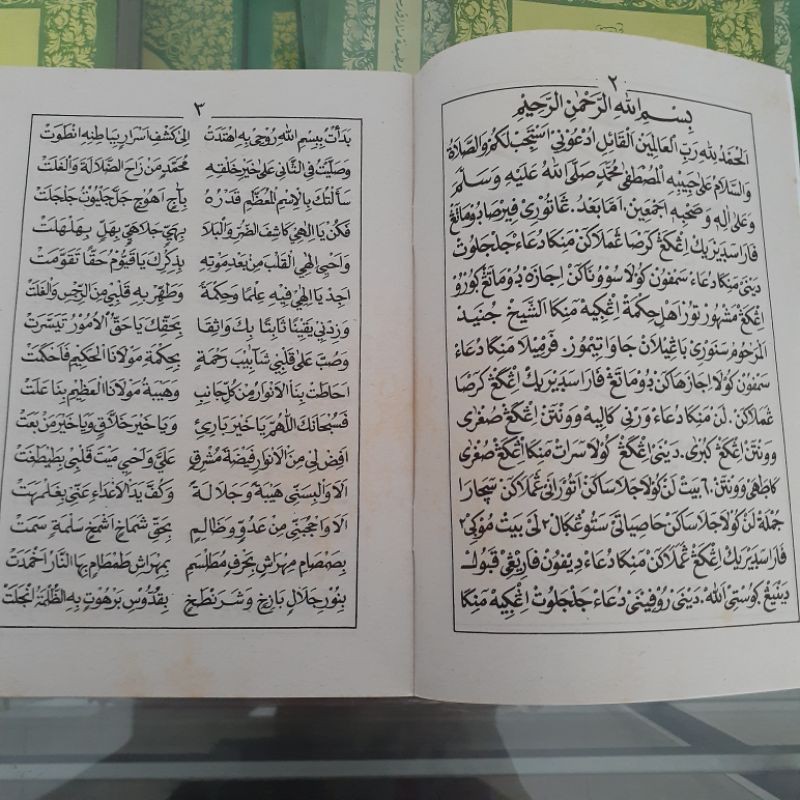 ٢
بِسْمِ اللهِ الرَّحْمٰنِ الرَّحِيْمِ
اَلْحَمْدُ لِلّٰهِ رَبِّ الْعَالَمِيْنَ الْقَائِلِ اُدْعُوْنِيْ اَسْتَجِبْ لَكُمْ وَالصَّلَاةُ
وَالسَّلَامُ عَلٰى حَبِيْبِهِ الْمُصْطَفٰى مُحَمَّدٍ صَلَّى اللهُ عَلَيْهِ وَسَلَّمَ
وَعَلٰى اٰلِهِ وَصَحْبِهِ اَجْمَعِيْنَ. اَمَّا بَعْدُ. عَاتُوْرِيْ فِيْرْصَا دُوْمَاتَڠْ
فَارَا سَدِيْرَيْكْ اِڠْكَڠْ كَرْصَا عَمَلَاكَنْ مَنِكَا دُعَاءْ جَلْجَلُوْتْ
دَيْنَيْ مَنِكَا دُعَاءْ سَمْفُوْنْ كَوْلَا سُوْوُوْنَاكَنْ اِجَازَهْ دُوْمَاتَڠْ كُوْرُوْ
اِڠْكَڠْ مَشْهُوْرْ تُوْرْ اَهْلِ حِكْمَةْ اِڠْكِيْهْ مَنِكَا الشَّيْخْ جُنَيْدْ
اَلْمَرْحُوْمْ سَنُوْرَيْ بَاڠِيْلَانْ جَاوَا تِيْمُوْرْ. فَرْمِيْلَا مَنِكَا دُعَاءْ
سَمْفُوْنْ كَوْلَا اِجَازَهَاكَنْ دُوْمَاتَڠْ فَارَا سَدَيْرَيْكْ اِڠْكَڠْ كَرْصَا
عَمَلَاكَنْ. لَنْ مَنِكَا دُعَاءْ وَرْنِيْ كَالِيْهْ وَوَنْتَنْ اِڠْكَڠْ صُغْرٰى
وَوَنْتَنْ اِڠْكَڠْ كُبْرٰى. دَيْنَيْ اِڠْكَڠْ كَوْلَا سَرَاتْ مَنِكَا اِڠْكَڠْ صُغْرٰى
كَاطَهَيْ وَوَنْتَنْ ٦٠ بَيْتْ لَنْ كَوْلَا جَلَاسَاكَنْ اَتُوْرَانَيْ عَمَلَاكَنْ سَچَارَا
جُمْلَهْ لَنْ كَوْلَا جَلَاسَاكَنْ خَاصِيَاتَيْ سَتُوْڠْكَالْ٢ لَيْ بَيْتْ مُوْكِيْ٢
فَارَا سَدَيْرَيْكْ اِڠْكَڠْ عَمَلَاكَنْ مَنِكَا دُعَاءْ دِيْفُوْنْ فَارِيْڠِيْ قَبُوْلْ
دَيْنَيْڠْ كُوْسْتِيْ اللهْ. دَيْنَيْ رُوْفِيْنَيْ دُعَاءْ جَلْجَلُوْتْ اِڠْكِيْهْ مَنِكَا
٣
بَدَأْتُ بِبِسْمِ اللهِ رُوْحِيْ بِهِ اهْتَدَتْ اِلٰى كَشْفِ اَسْرَارٍ بِبَاطِنِهِ انْطَوَتْ
وَصَلَّيْتُ فِى الثَّانِيْ عَلٰى خَيْرِ خَلْقِهِ مُحَمَّدٍ مَنْ زَاحَ الضَّلَالَةَ وَالْغَلَتْ
سَأَلْتُكَ بِالْاِسْمِ الْمُعَظَّمِ قَدْرُهُ بِاٰجٍ اَهُوْجٍ جَلَّ جَلْيُوْتُ جَلْجَلَتْ
فَكُنْ يَا اِلٰهِيْ كَاشِفَ الضُّرِّ وَالْبَلَا بِهَيِّ جَلَاهَيٍّ بِهَلٍ بِهَلْهَلَتْ
وَاَحْيِيْ اِلٰهِي الْقَلْبَ مِنْ بَعْدِ مَوْتِهِ بِذِكْرِكَ يَا قَيُّوْمُ حَقًّا تَقَوَّمَتْ
اَجِدْ يَا اِلٰهِيْ فِيْهِ عِلْمًا وَحِكْمَةً وَطَهِّرْ بِهِ قَلْبِيْ مِنَ الرِّجْسِ وَالْغَلَتْ
وَزِدْنِيْ يَقِيْنًا ثَابِتًا بِكَ وَاثِقًا بِحَقِّكَ يَا حَقَّ الْاُمُوْرُ تَيَسَّرَتْ
وَصُبَّ عَلٰى قَلْبِيْ شَاٰبِيْبَ رَحْمَةٍ بِحِكْمَةِ مَوْلَانَا الْحَكِيْمِ فَاَحْكَمَتْ
اَحَاطَتْ بِنَا الْاَنْوَارُ مِنْ كُلِّ جَانِبٍ وَهَيْبَةُ مَوْلَانَا الْعَظِيْمِ بِنَا عَلَتْ
فَسُبْحَانَكَ اللّٰهُمَّ يَا خَيْرَ بَارِئٍ وَيَا خَيْرَ خَلَّاقٍ وَيَا خَيْرَ مَنْ بَعَتْ
اَفِضْ لِيْ مِنَ الْاَنْوَارِ فَيْضَةَ مُشْرِقٍ عَلَيَّ وَاَحْيِيْ مَيْتَ قَلْبِيْ بِطَيْطَفَتْ
اَلَا وَاَلْبِسَنِّيْ هَيْبَةً وَجَلَالَةً وَكُفَّ يَدَ الْاَعْدَاءِ عَنِّيْ بِغَلْمَهَتْ
اَلَا وَاحْجُبَنِّيْ مِنْ عَدُوٍّ وَظَالِمٍ بِحَقِّ شَمَاخٍ اَشْمَخٍ سَلْمَةٍ سَمَتْ
بِصَمْصَامٍ مِهْرَاشٍ بِحَرْفٍ مُطَلْسَمٍ بِمِهْرَاشٍ طَمْطَامٍ بِهَا النَّارُ اُخْمِدَتْ
بِنُوْرِ جَلَالٍ بَازِخٍ وَشَرَنْطَخٍ بِقُدُّوْسٍ بَرْهُوْتٍ بِهِ الظُّلْمَةُ انْجَلَتْ